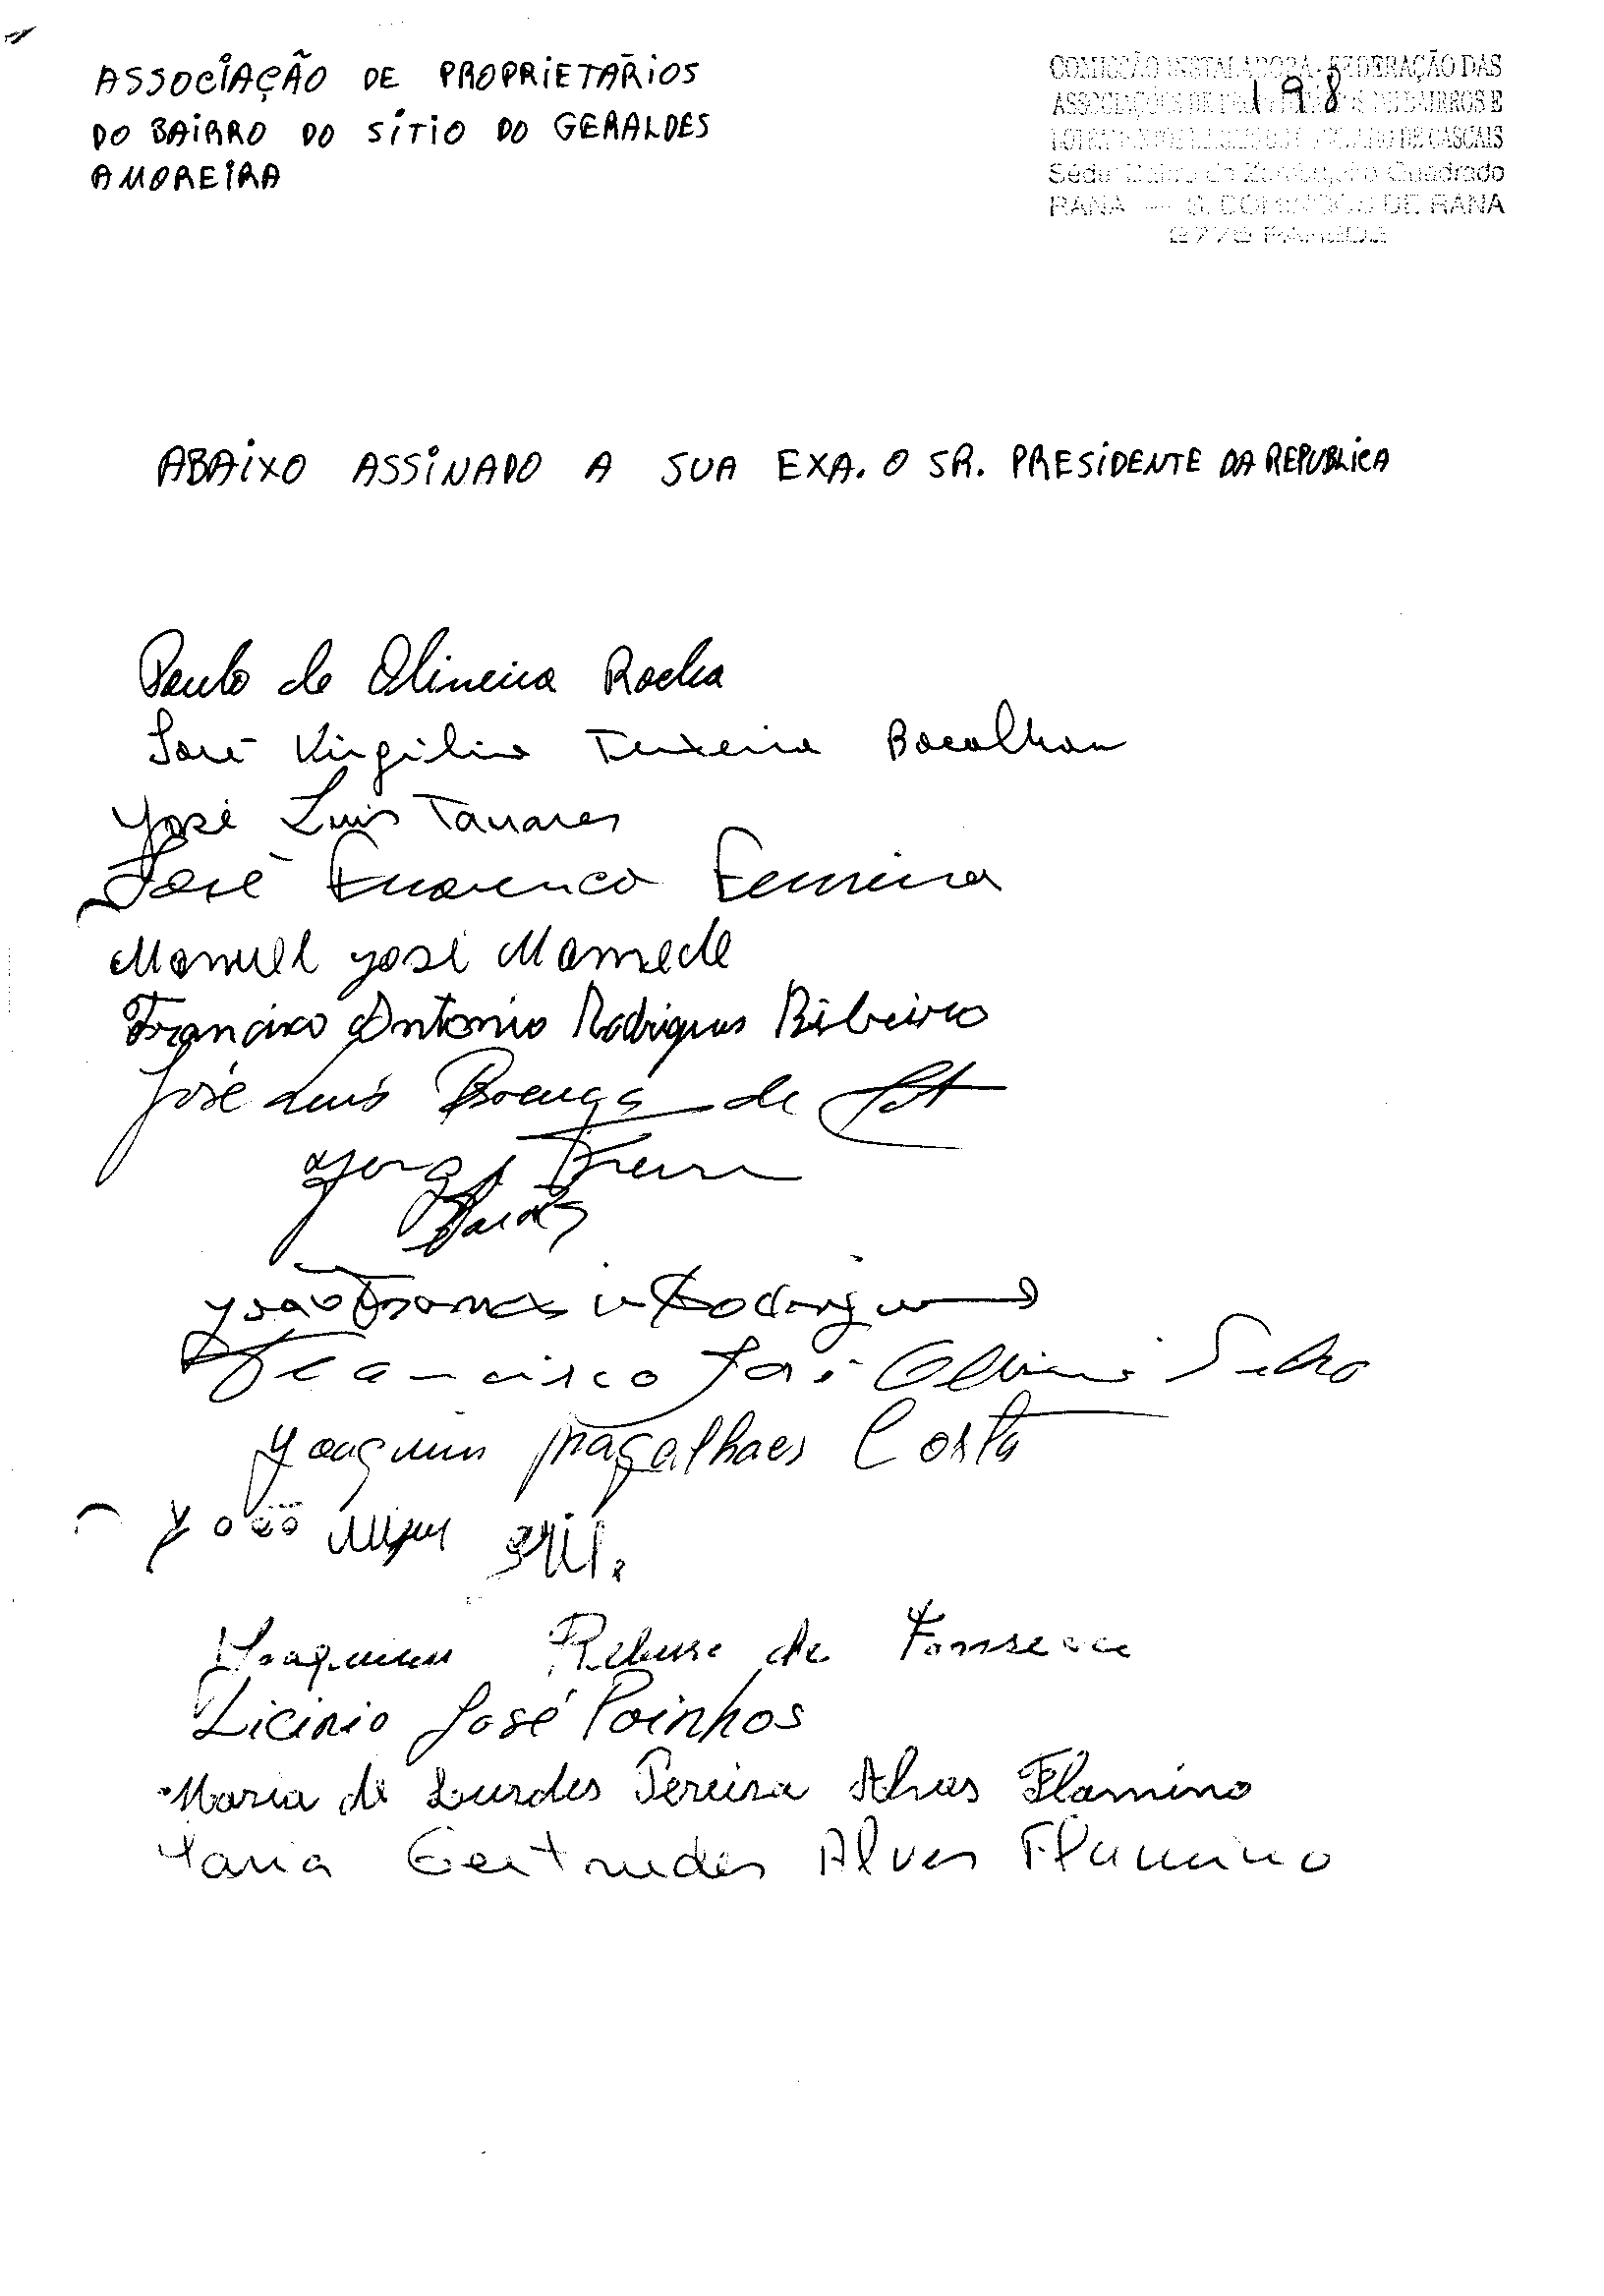 ASSOCIAÇÃO DE PROPRIETÁRIOS
DO BAIRRO DO SÍTIO DO GERALDES
AMOREIRA
COMISSÃO INSTALADORA - FEDERAÇÃO DAS
198
ASSOCIAÇÕES DE BAIRROS E
DE CASCAIS
Sede: Quadrado
RANA — S. DOMINGOS DE RANA
2775 PAREDE
ABAIXO ASSINADO A SUA EXA. O SR. PRESIDENTE DA REPUBLICA
Paulo de Oliveira Rocha
José Virgílio Teixeira Bacalhau
José Luis Tavares
José Ferreira
Manuel José Mamede
Francisco Antonio Rodrigues Ribeiro
José Luís de
Jorge
João Rodrigues
Francisco José
Joaquim Magalhaes Costa
João
Joaquim de Fonseca
Licinio José Poinhos
Maria de Lurdes Pereira Alves Flamino
Maria Gertrudes Alves Flamino